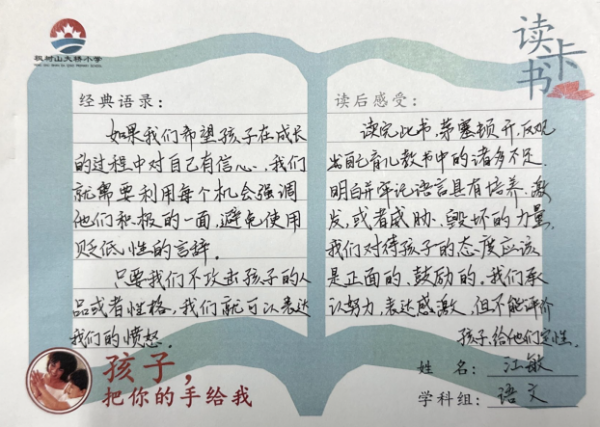 读书卡
大桥小学
经典语录：
如果我们希望孩子在成长
的过程中对自己有信心，我们
就需要利用每个机会强调
他们积极的一面，避免使用
贬低性的言辞。
只要我们不攻击孩子的人
品或者性格，我们就可以表达
我们的愤怒。
读后感受：
读完此书，茅塞顿开，反观
自己育儿教书中的诸多不足，
明白并牢记语言具有培养、激
发，或者威胁、毁坏的力量，
我们对待孩子的态度应该
是正面的、鼓励的。我们承
认努力，表达感激，但不能评价
孩子，给他们定性。
孩子，
把你的手给我
姓 名：汪敏
学科组：语文